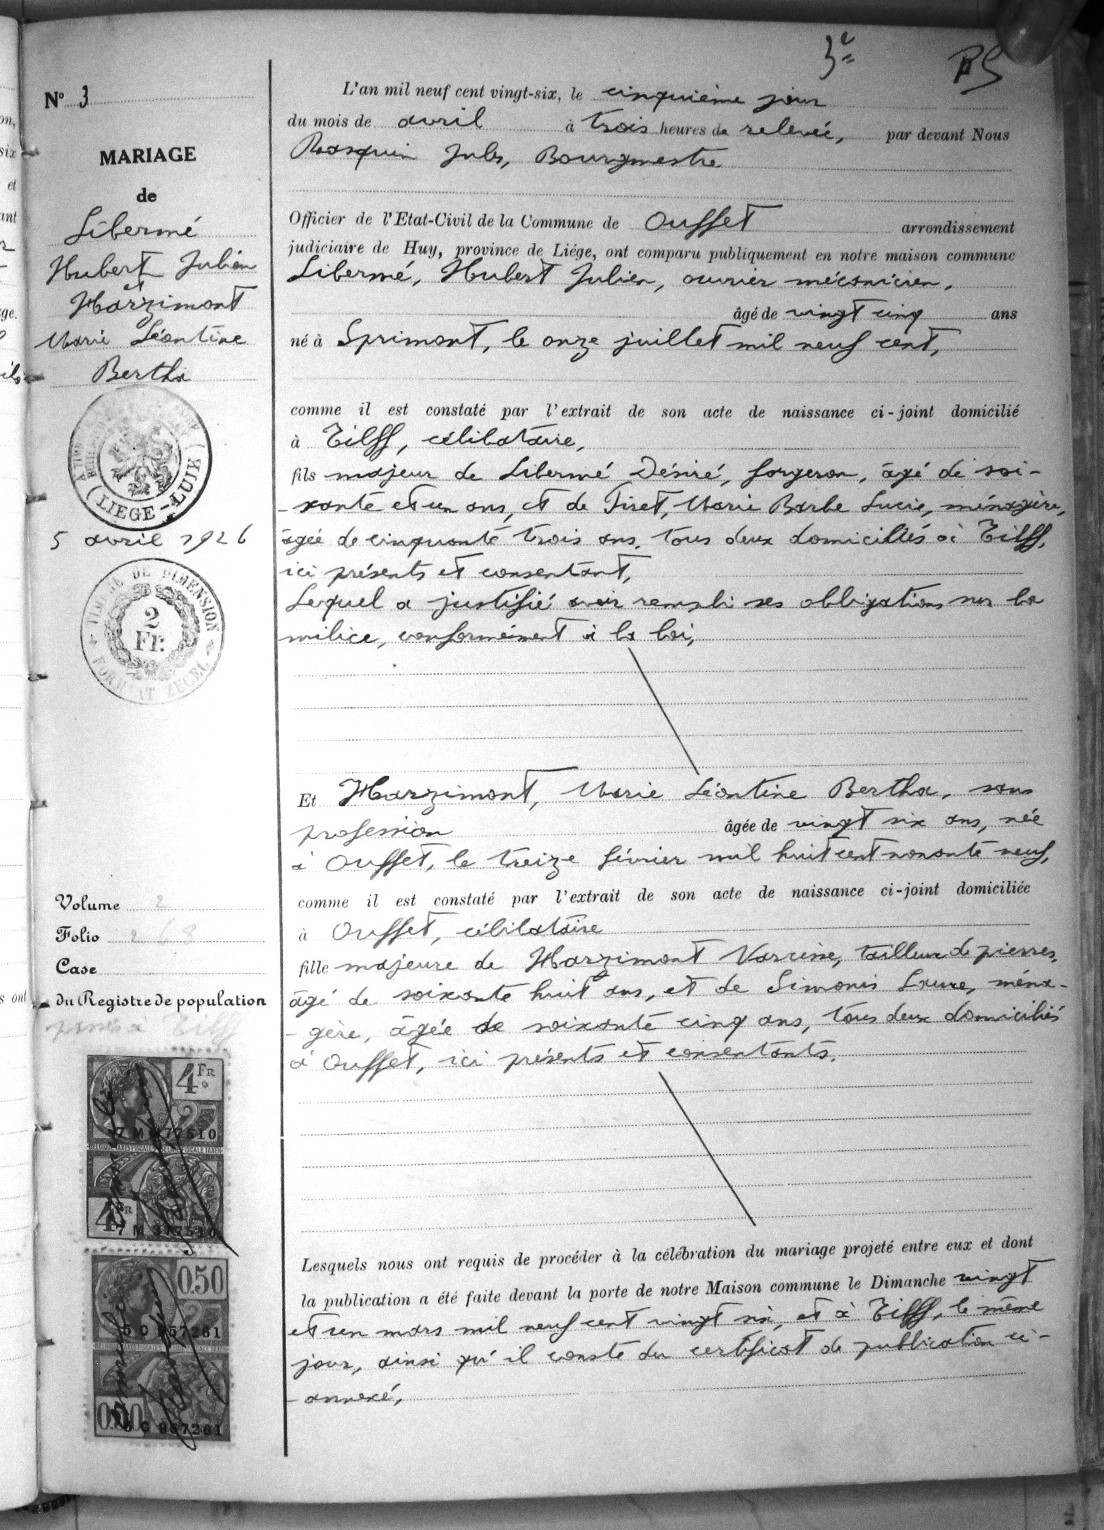 3e
N° 3
MARIAGE
de
Libermé
Hubert Julien
et
Harzimont
Marie Léontine
Bertha
LIEGE-LUIK
5 avril 1926
TIMBRE DE DIMENSION
2
Fr.
FORMAT ZEGEL
Volume 2
Folio 268
Case
du Registre de population
4 FR
7 M 77510
4 FR
7 M 377510
0.50
5 C 957261
0.50
5 C 957261
L'an mil neuf cent vingt-six, le cinquième jour
du mois de avril à trois heures de relevée, par devant Nous
Rasquin Jules, Bourgmestre
Officier de l'Etat-Civil de la Commune de Ouffet arrondissement
judiciaire de Huy, province de Liége, ont comparu publiquement en notre maison commune
Libermé, Hubert Julien, ouvrier mécanicien,
âgé de vingt cinq ans
né à Sprimont, le onze juillet mil neuf cent,
comme il est constaté par l'extrait de son acte de naissance ci-joint domicilié
à Tilff, célibataire,
fils majeur de Libermé Désiré, forgeron, âgé de soi-
-xante et un ans, et de Firet, Marie Barbe Lucie, ménagère,
âgée de cinquante trois ans, tous deux domiciliés à Tilff,
ici présents et consentant,
Lequel a justifié avoir rempli ses obligations sur la
milice, conformément à la loi,
Et Harzimont, Marie Léontine Bertha, sans
profession âgée de vingt six ans, née
à Ouffet, le treize février mil huit cent nonante neuf,
comme il est constaté par l'extrait de son acte de naissance ci-joint domiciliée
à Ouffet, célibataire
fille majeure de Harzimont Narcisse, tailleur de pierres,
âgé de soixante huit ans, et de Simonis Laure, ména-
-gère, âgée de soixante cinq ans, tous deux domiciliés
à Ouffet, ici présents et consentants.
Lesquels nous ont requis de procéder à la célébration du mariage projeté entre eux et dont
la publication a été faite devant la porte de notre Maison commune le Dimanche vingt
et un mars mil neuf cent vingt six, et à Tilff, le même
jour, ainsi qu'il conste du certificat de publication ci-
-annexé,